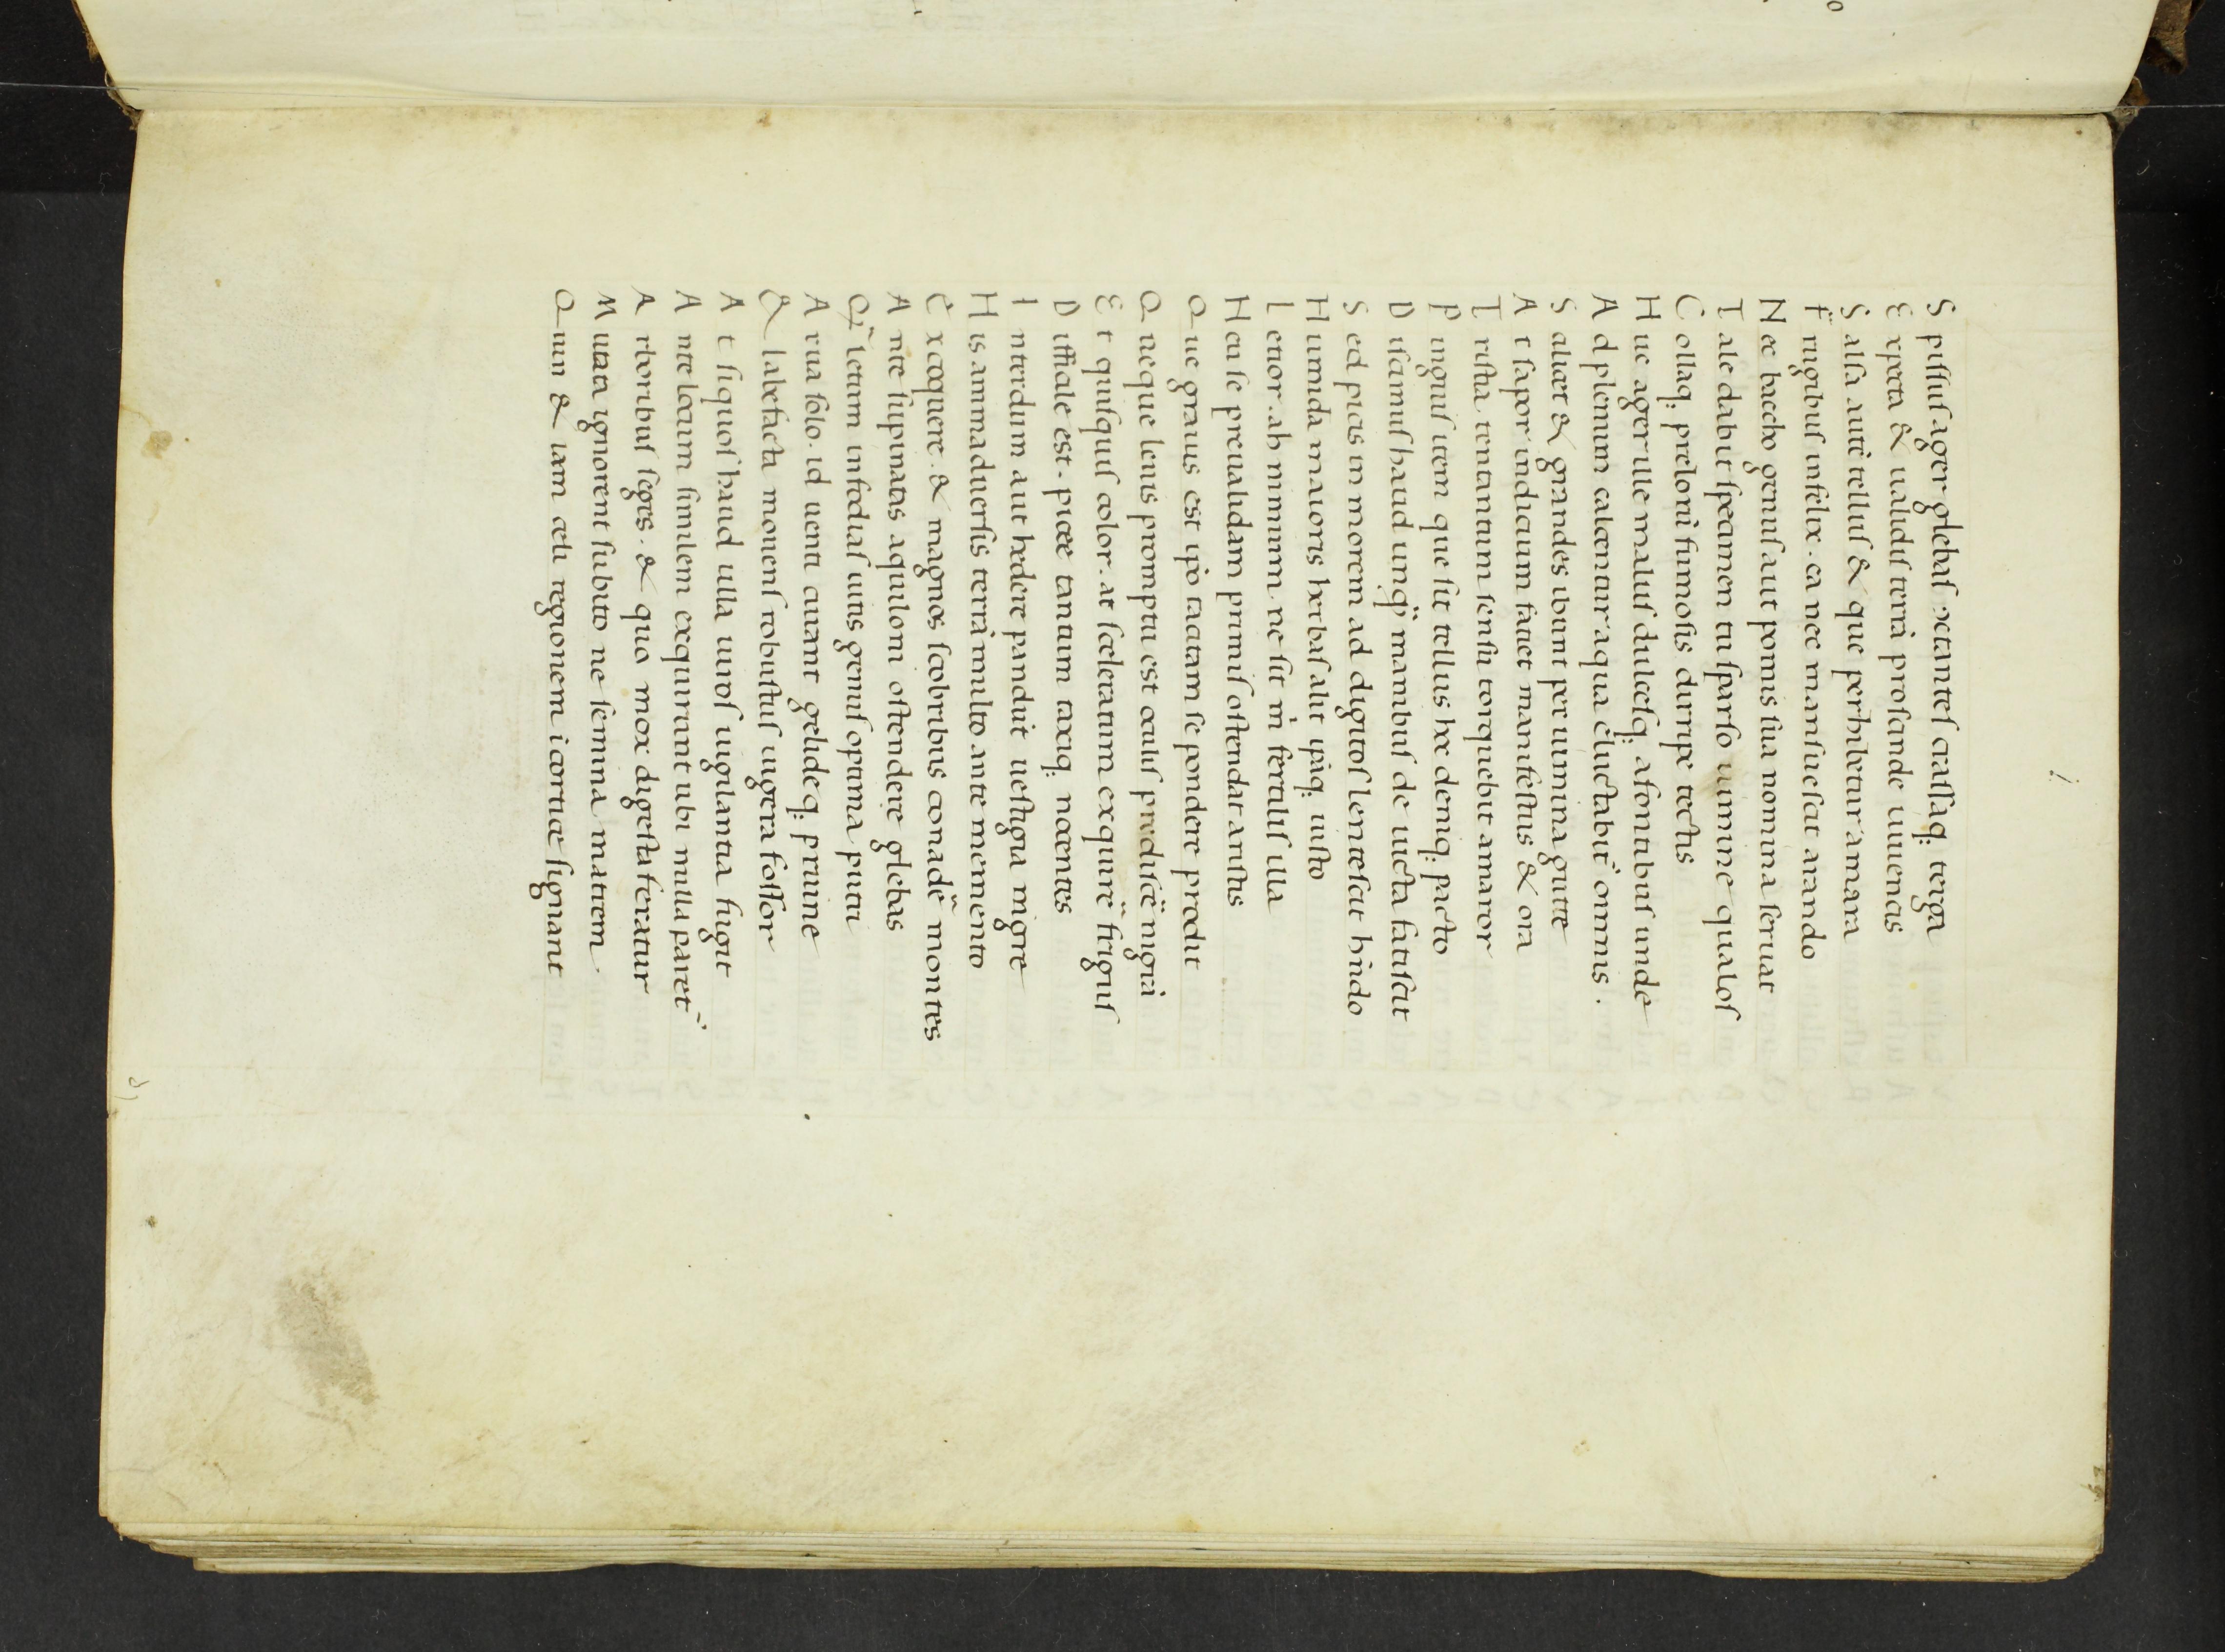 Spissus ager glebas cctantes crassaq; terga
Expecta & ualidis terrā proscinde iuuencis
Salsa autē tellus & que perhibetur amara
Frugibus infelix. ea nec mansuescit arando
Nec baccho genus aut pomis sua nomina seruat
Tale dabit specimen tu sparso uimine qualos
Collaq; prelorū fumosis diripe tectis
Huc ager ille malus dulcesq; a fontibus unde
Ad plenum calcentur aqua eluctabit̄ omnis.
Salicet & grandes ibunt per uimina gutte
At sapor indicium faciet manifestus & ora
Tristia tentantum sensu torquebit amaror
Pinguis item que sit tellus hoc deniq; pacto
Discimus haud unq̄ manibus de iacta fatiscit
Sed picis in morem ad digitos lentescit hindo
Humida maiores herbas alit ipāq; iusto
Letior. ah nimium. ne sit m̄ fertilis illa
Heu se preualidam primis ostendat aristis
Que grauis est ip̄o tacitam se pondere prodit
Queque leuis promptu est oculis prediscē nigrā
Et quisquis color. at sceleratum exquirē frigus
Difficile est. picee tantum taxiq; nocentes
Interdum aut hedere pandūt uestigia nigre
His animaduersis terrā multo ante memento
Excoquere. & magnos scrobribus conadē montes
Ante supinatas aquiloni ostendere glebas
Q̄ letum infodias uitis genus optima putri
Arua solo. id uenti curant gelideq; pruine
& labefacta mouens robustus iugera fossor
At si quos haud ulla uiros uigilantia fugit
Ante locum similem exquirunt ubi nulla paret̄
Arboribus seges. & quo mox digesta feratur
Mutata ignorent subito ne semina matrem.
Quin & iam celi regionem i cortice signant